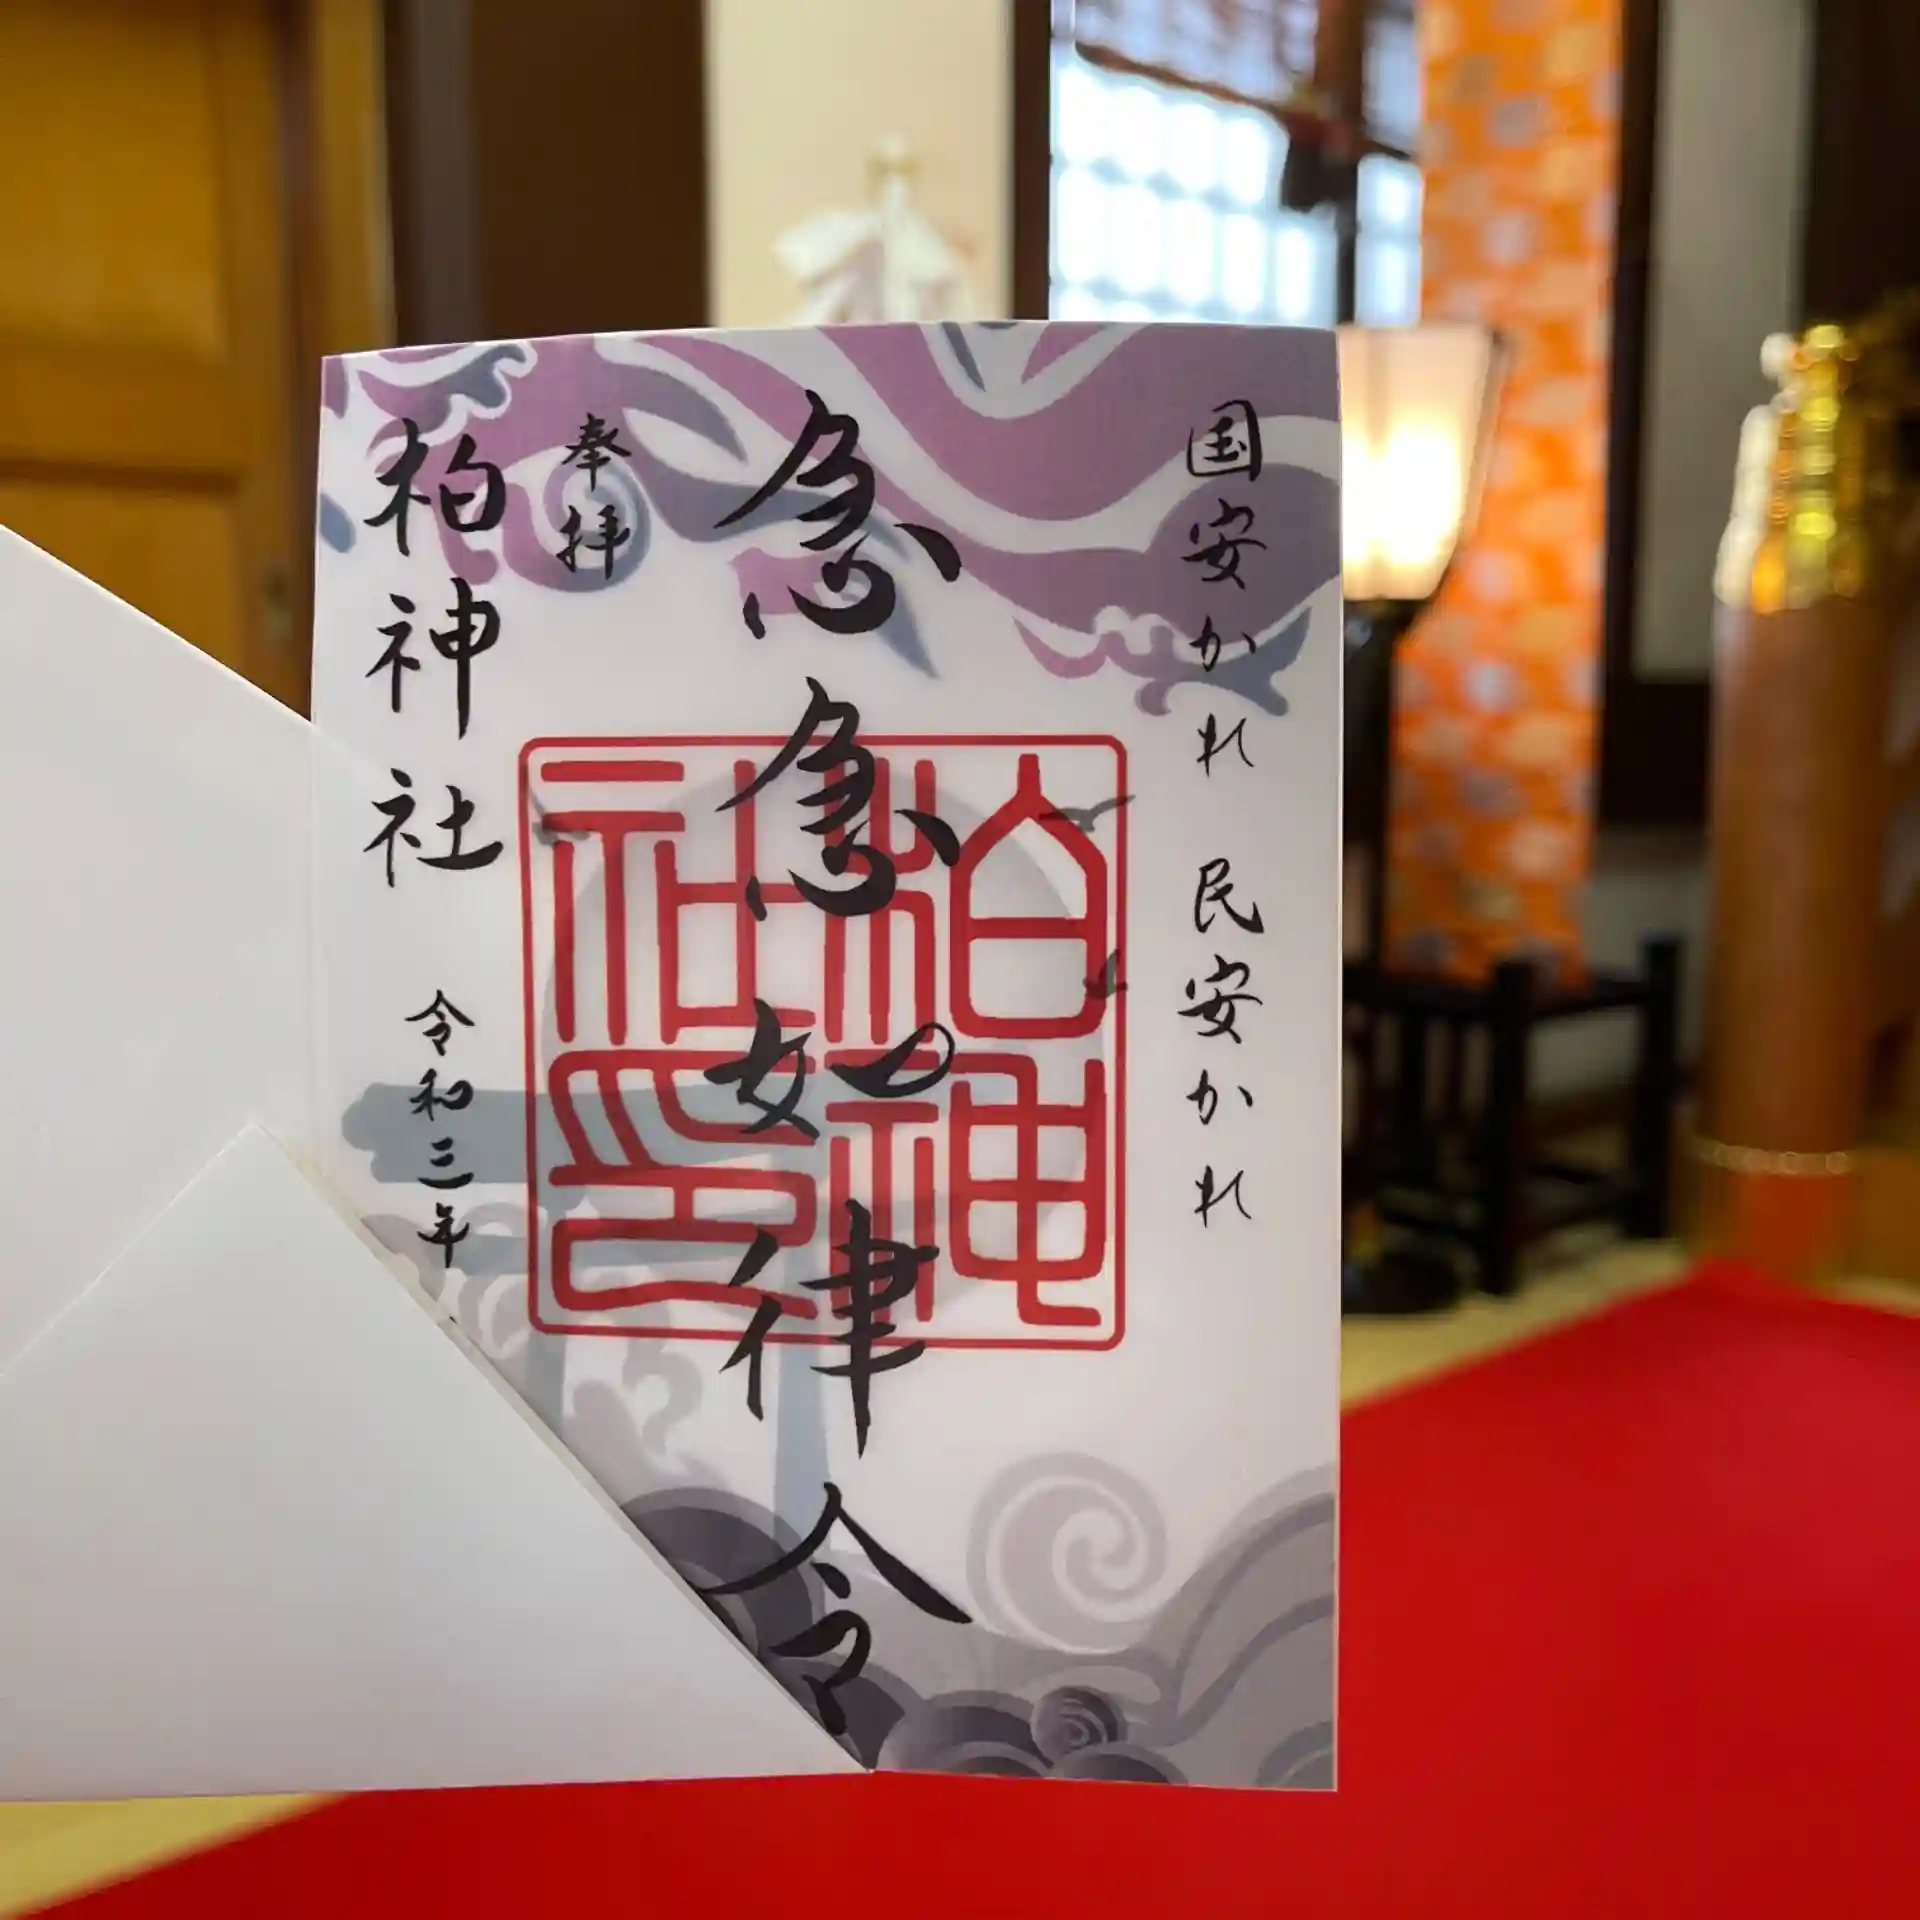 国安かれ 民安かれ
急急如律令
奉拝
柏神社 令和三年
柏神
社印